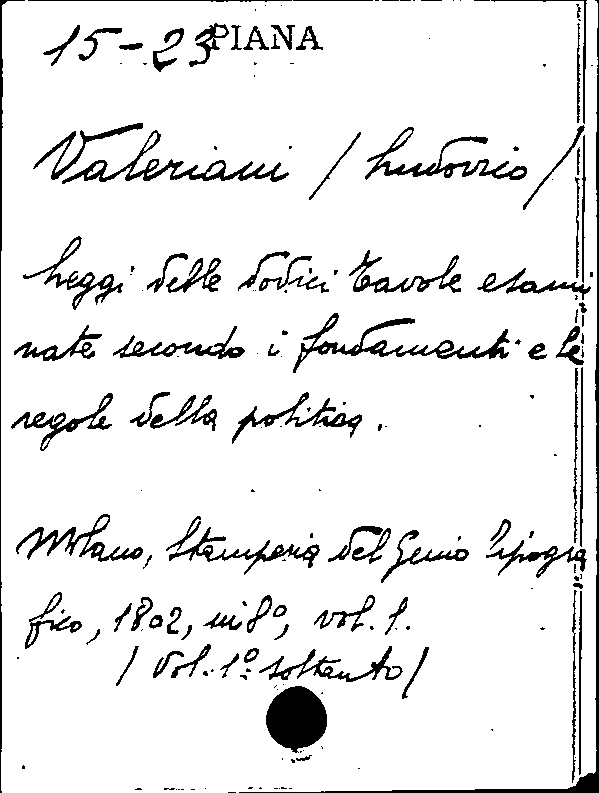 15-23 PIANA
Valeriani / Ludovico /
Leggi delle dodici Tavole esami
nate secondo i fondamenti e le
regole della politica.
Milano, Stamperia del Genio Tipogra
fico, 1802, in 8º, vol. 1.
/ Vol. 1º soltanto /